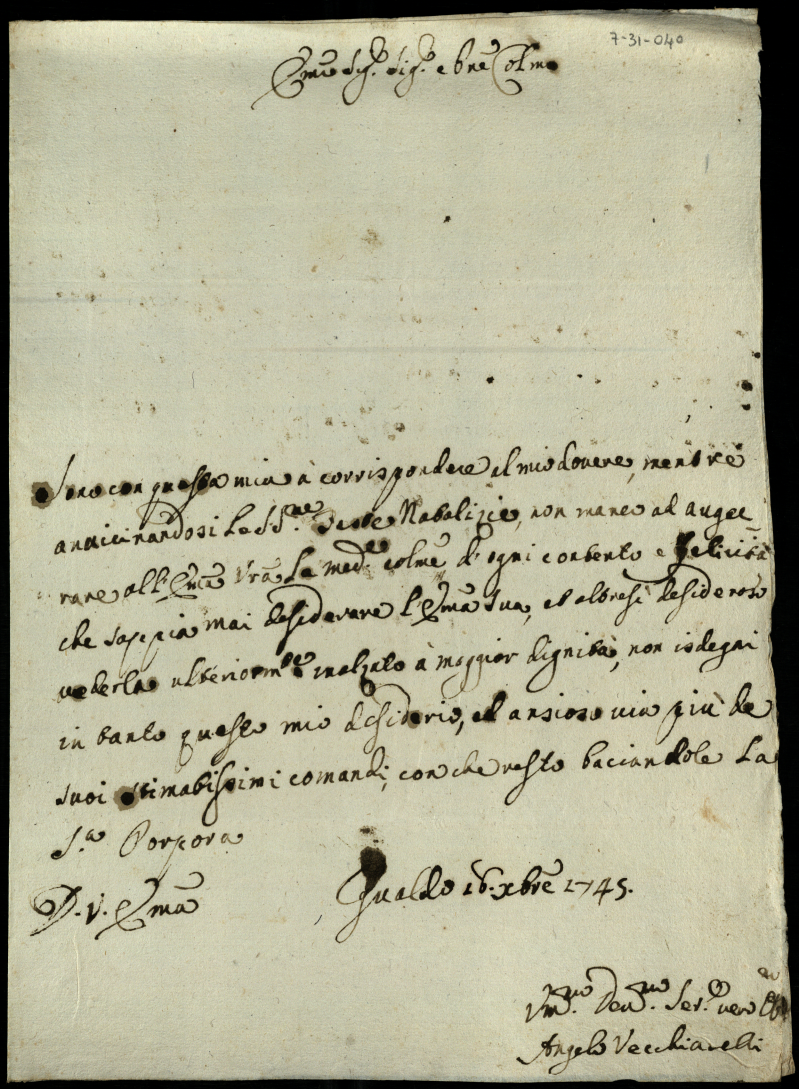 7-31-040
Emo Sig.r Sig.r e Pne Colmo
Sono con questa mia à corrispondere al mio dovere, mentre
avvicinandosi le SS.me Feste Natalizie, non manco ad augu
rare all'Emã Vrã le med.me colme d'ogni contento e felicità
che sappia mai desiderare l'Emã Sua, et altresì desideroso
vederla ulteriorm.te inalzato à maggior dignità, non isdegni
in tanto questo mio desiderio, et ansioso via più de
suoi stimatissimi comandi, con che resto baciandole La
S.a Porpora
D. V. Emã
Gualdo 16. xbrẽ 1745.
Um.mo Dev.mo Ser.e vero
Angelo Vecchiarelli